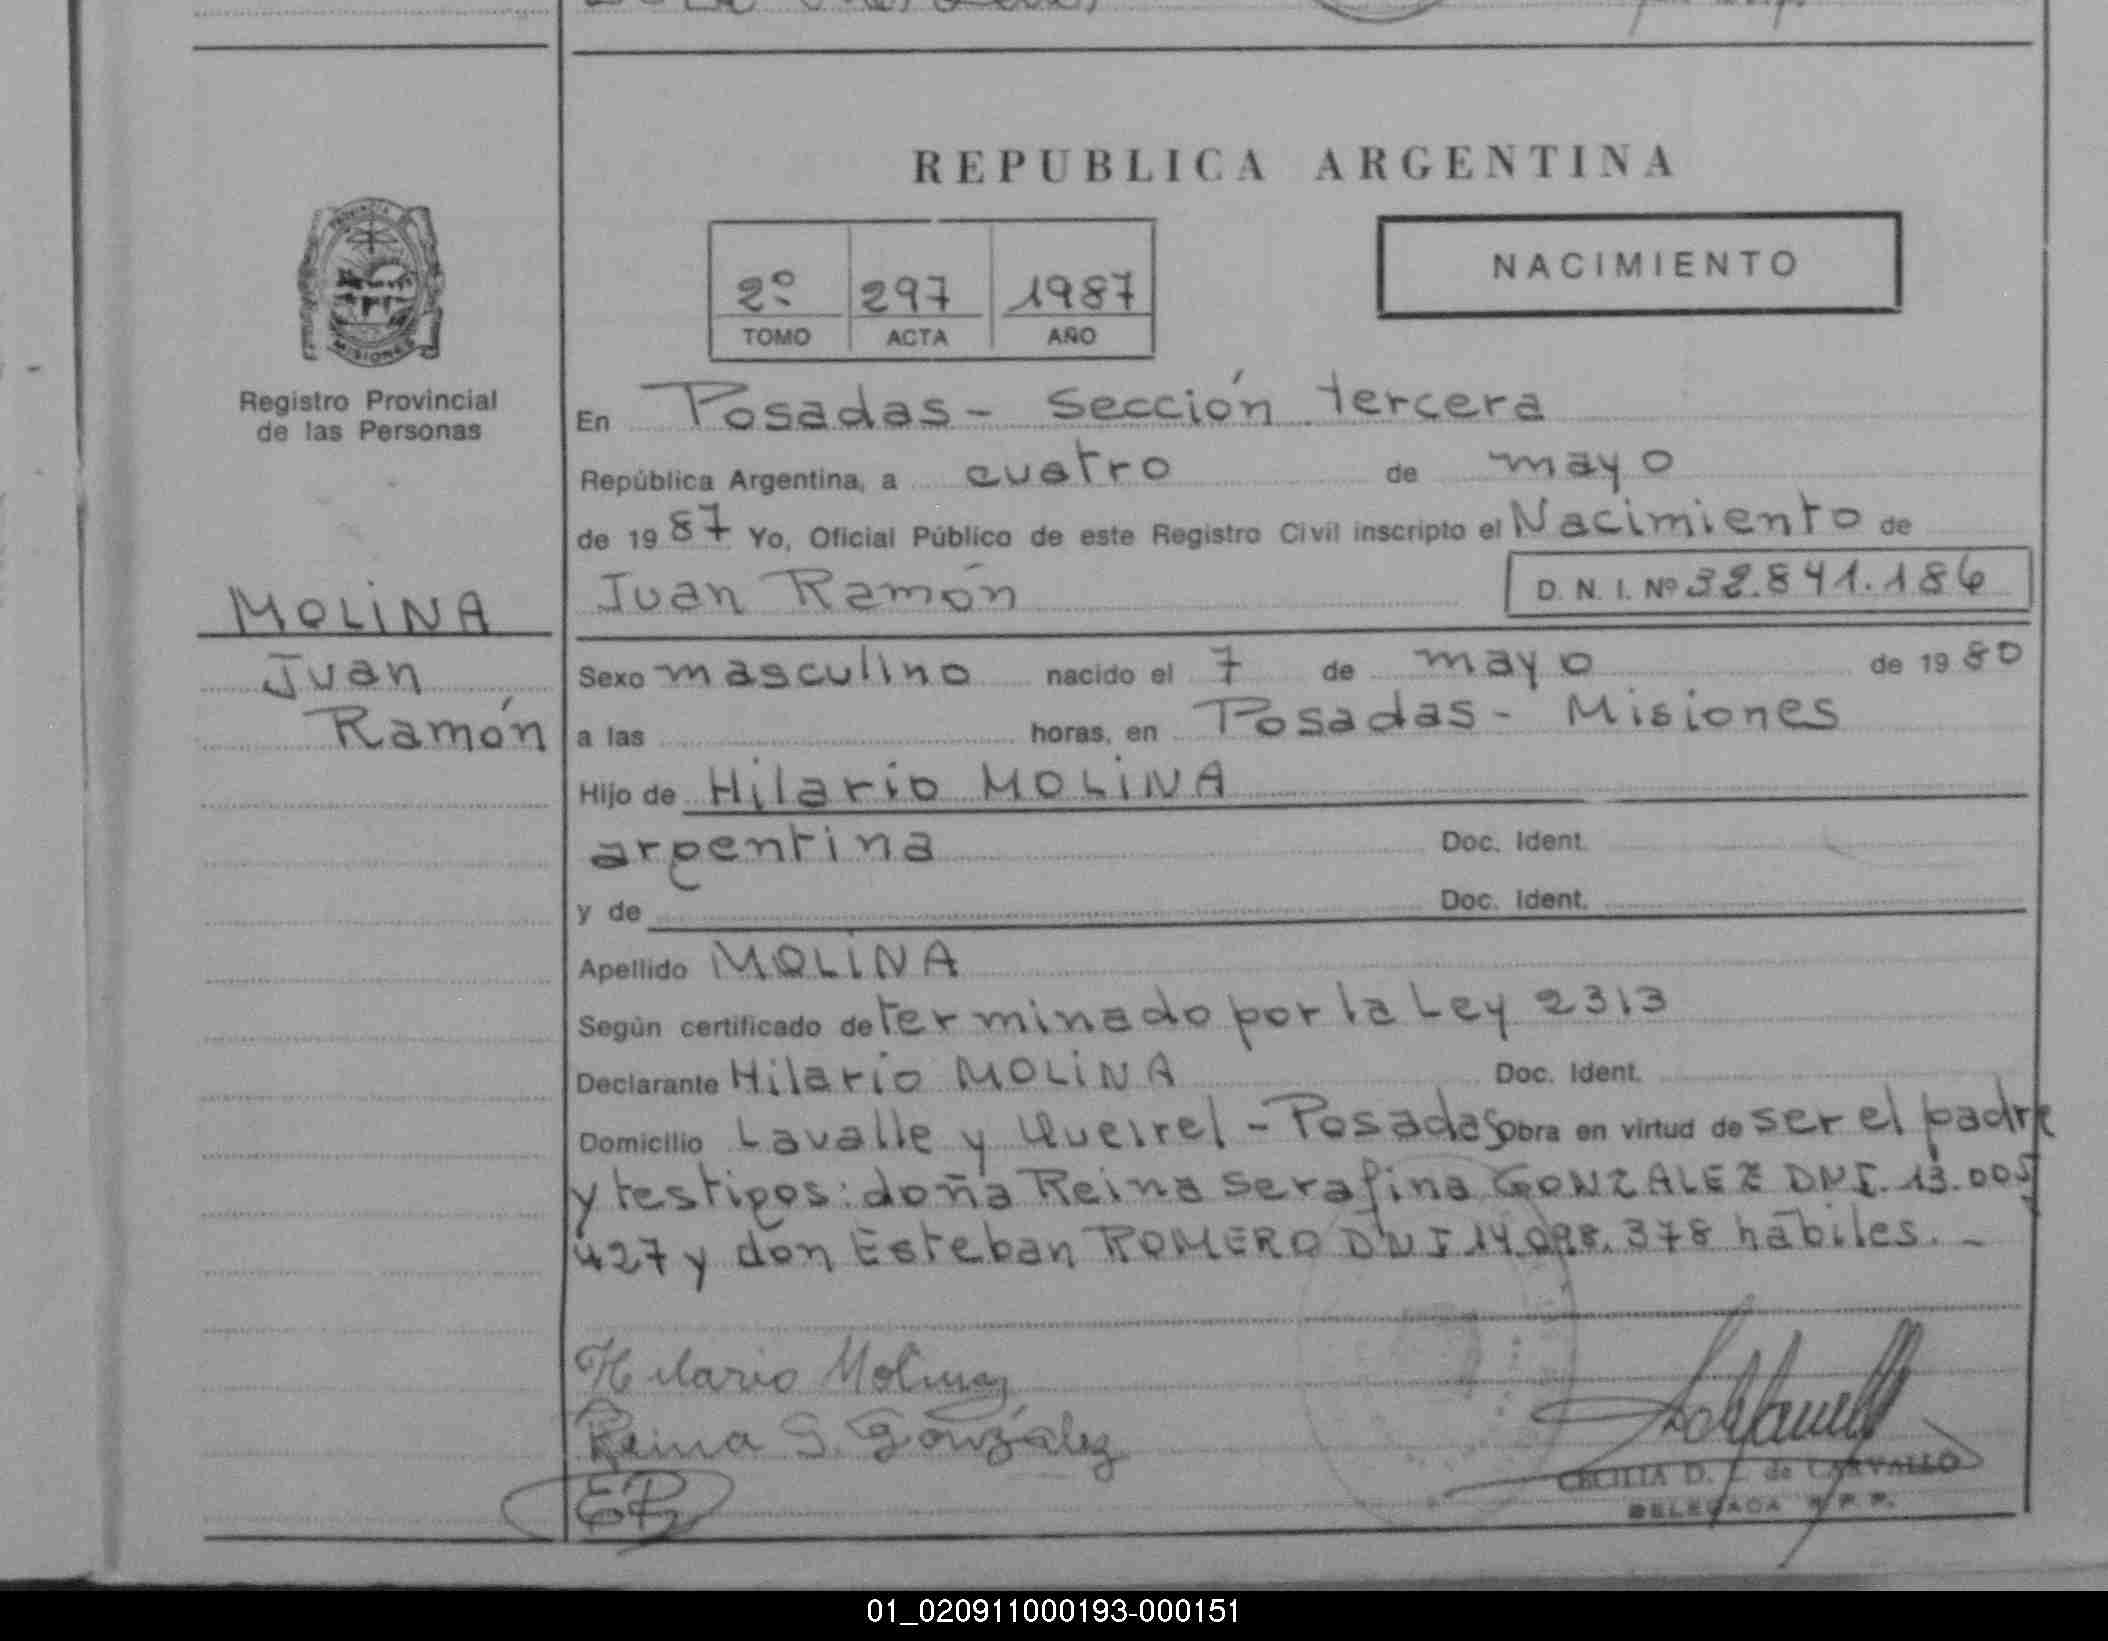 REPUBLICA ARGENTINA
NACIMIENTO
2º 297 1987
TOMO ACTA AÑO
PROVINCIA
MISIONES
Registro Provincial
de las Personas
MOLINA
Juan
Ramón
En Posadas - Sección tercera
República Argentina, a cuatro de mayo
de 1987 Yo, Oficial Público de este Registro Civil inscripto el Nacimiento de
Juan Ramón D. N. I. Nº 32.841.186
Sexo masculino nacido el 7 de mayo de 1980
a las horas, en Posadas - Misiones
Hijo de Hilario MOLINA
argentina Doc. Ident.
y de Doc. Ident.
Apellido MOLINA
Según certificado determinado por la Ley 2313
Declarante Hilario MOLINA Doc. Ident.
Domicilio Lavalle y Queirel - Posadas obra en virtud de ser el padre
y testigos: doña Reina Serafina GONZALEZ DNI. 13.005
427 y don Esteban ROMERO DNI 14.098.378 hábiles. -
Hilario Molina
Reina S. González
ER
CECILIA D. de CARVALLO
DELEGADA R.P.P.
01_020911000193-000151